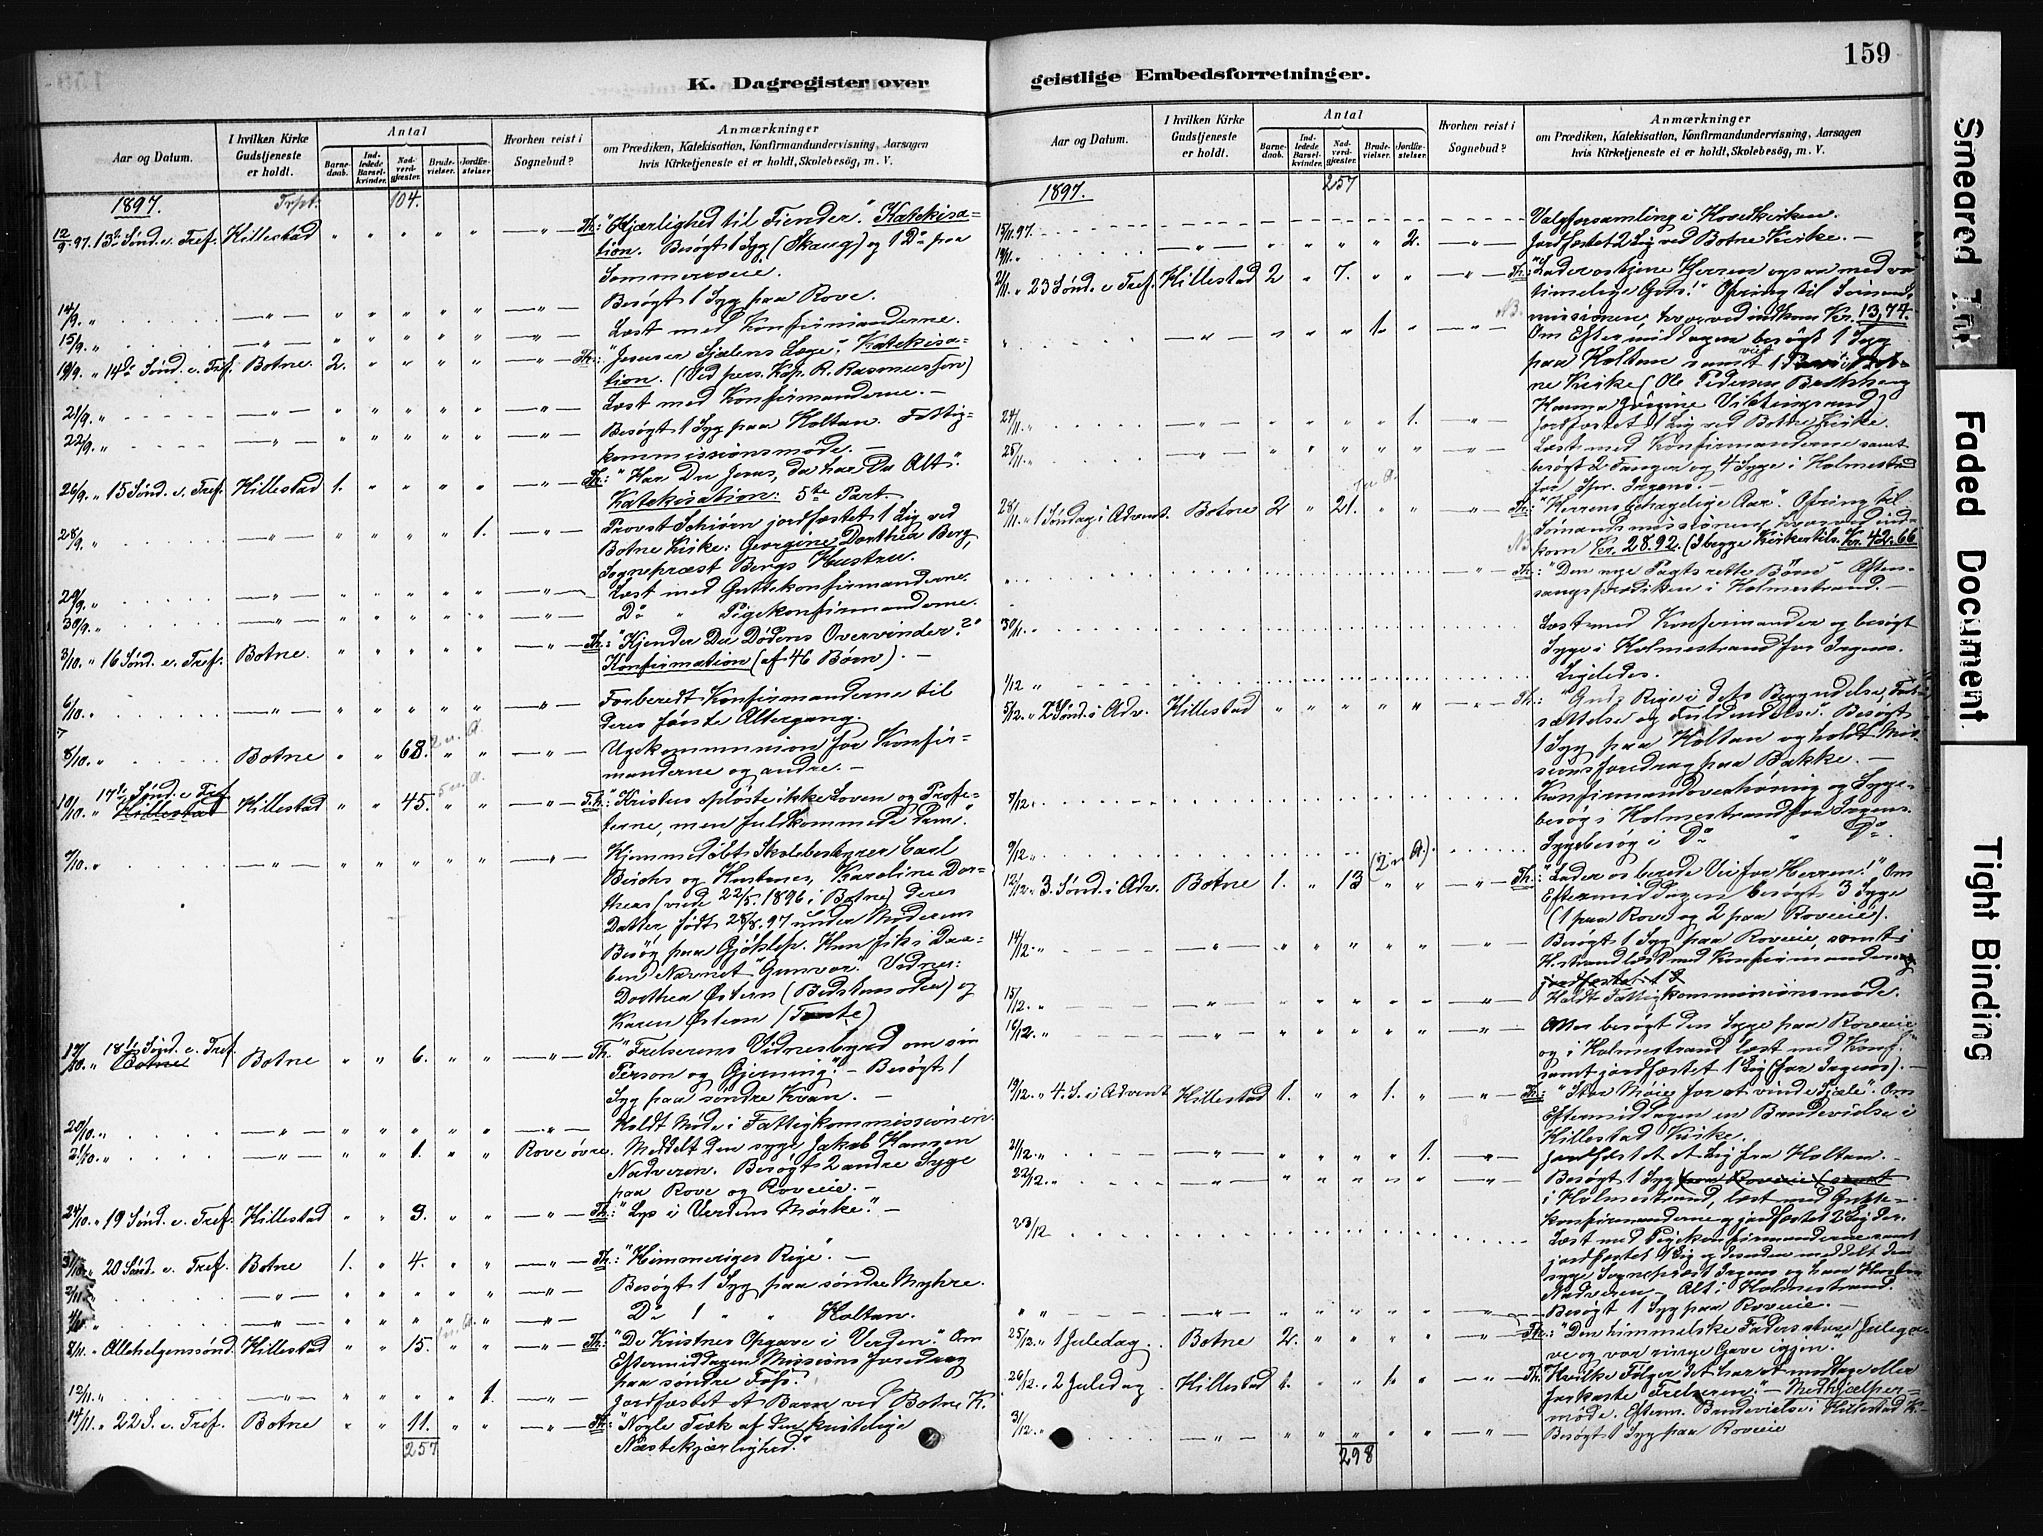 159
K. Dagregister over
geistlige Embedsforretninger.
Aar og Datum.
I hvilken Kirke Gudstjeneste er holdt.
Antal
Barnedaab.
Indledede Barselkvinder.
Nadverdgjæster.
Brudevielser.
Jordfæstelser
Hvorhen reist i Sognebud?
Anmærkninger
om Prædiken, Katekisation, Konfirmandundervisning, Aarsagen
hvis Kirketjeneste ei er holdt, Skolebesøg, m. V.
1897. Trpt. 104.
12/9.97. 13de Sønd. e. Tref. Hillestad " " " " " — " — Th: "Kjærlighed til Fiender". Katekisa-
tion. Besøgt 1 Syg (Skaug) og 1 Do paa
Sommerveie.
14/9. " — " — " " " " " — " — Besøgt 1 Syg paa Rove.
15/9. " — " — " " " " " — " — Læst med Konfirmanderne.
19/9. " 14de Sønd. e. Tref. Botne. 2. " " " " — " — Th: "Jesus er Sjælens Læge". Katekisa-
tion. (Ved pers. Kap. R. Rasmussen)
21/9. " — " — " " " " " — " — Læst med Konfirmanderne. —
22/9. " — " — " " " " " — " — Besøgt 1 Syg paa Holtan. Fattig-
kommissionsmøde. —
26/9. " 15 Sønd. e. Tref. Hillestad 1. " " " " — " — Th: "Har Du Jesus, da har Du Alt".
Katekisation: 5te Part.
28/9. " — " — " " " " 1. — " — Provst Schiørn jordfæstet 1 Lig ved
Botne Kirke: Georgine Dorthea Berg,
Sognepræst Bergs Hustru.
29/9. " — " — " " " " " — " — Læst med Guttekonfirmanderne.
30/9. " — " — " " " " " — " — Do " Pigekonfirmanderne.
3/10. " 16 Sønd. e. Tref. Botne. " " " " " — " — Th: "Kjender Du Dødens Overvinder?"
Konfirmation (af 46 Børn). —
6/10. " — " — " " " " " — " — Forberedt Konfirmanderne til
deres første Altergang.
8/10. " Botne " " 68. 2 u. A. " " — " — Ugekommunion for Konfir-
manderne og andre. —
10/10. " 17de Sønd. e. Tref. Hillestad Hillestad " " 45. 5 u. A. " " — " — Th: "Kristus opløste ikke Loven og Profe-
terne, men fuldkommede dem".
"/10. " — " — " " " " " — " — Hjemmedøbt Skolebestyrer Carl
Berchs og Hustrues, Karoline Dor-
theas (viede 22/5. 1896 i Botne) deres
Datter, født 28/8. 97 under Moderens
Besøg paa Gjøklep. Hun fik i Daa-
ben Navnet "Gunvor". Vidner:
Dorthea Østern (Bedstemoder) og
Karen Østern (Tante)
17/10. " 18de Sønd. e. Tref. Botne Botne " " 6. " " — " — Th. "Frelserens Vidnesbyrd om sin
Person og Gjerning". — Besøgt 1
Syg paa søndre Kvan. —
20/10. " — " — " " " " " — " — Holdt Møde i Fattigkommissionen.
21/10. " — " — " " 1. " " Rove øvre. Meddelt den syge Jakob Hansen
Nadveren. Besøgt 2 andre Syge
paa Rove og Roveeie. —
24/10. " 19 Sønd. e. Tref. Hillestad " " 3. " " — " — Th: "Lys i Verdens Mørke". —
31/10. " 20 Sønd. e. Tref. Botne 1. " 4. " " — " — Th: "Himmeriges Rige". —
2/11. " — " — " " " " " — " — Besøgt 1 Syg paa søndre Myhre.
4/11. " — " — " " " " " — " — Do 1 " " Holtan.
8/11. " Allehelgenssønd. Hillestad " " 15. " " — " — Th: "De Kristnes Opgave i Verden". Om
Eftermiddagen Missions foredrag
paa søndre Foss.
12/11. " — " — " " " " 1. — " — Jordfæstet et Barn ved Botne K.
14/11. " 22 S. e. Tref. Botne " " 11. " " — " — Th: "Nogle Træk af den kristelige
Næstekjærlighed."
257
Aar og Datum.
I hvilken Kirke Gudstjeneste er holdt.
Antal
Barnedaab.
Indledede Barselkvinder.
Nadverdgjæster.
Brudevielser.
Jordfæstelser.
Hvorhen reist i Sognebud?
Anmærkninger
om Prædiken, Katekisation, Konfirmandundervisning, Aarsagen
hvis Kirketjeneste ei er holdt, Skolebesøg, m. V.
1897. 257
15/11.97. Valgforsamling i Hovedkirken.
19/11. " — " — " " " " 2. — " — Jordfæstet 2 Lig ved Botne Kirke. —
21/11. " 23 Sønd. e. Tref. Hillestad 2 " 7. " " — " — Th: "Lader os tjene Herren ogsaa med vort
timelige Gods!" Ofring til Sømands-
missionen, hvorved indkom Kr. 13,74.
" — " — " " " 1. " — " — NB. Om Eftermiddagen besøgt 1 Syg
paa Holtan samt viet 1 Par i Bot-
ne Kirke (Ole Pedersen
24/11. " — " — " " " " 1. — " — Jordfæstet 1 Lig ved Botne Kirke.
25/11. " — " — " " " " " — " — Læst med Konfirmanderne samt
besøgt 2 Fanger og 4 Syge i Holmestrand
for Spr. Irgens. —
28/11. " 1 Søndag i Advent. Botne 2 " 21. " " — " — Th: "Herrens behagelige Aar". Ofring til
Sømandsmissionen, hvorved ind-
kom Kr. 28.92. (I begge Kirker tils. Kr. 42.66
" — " — Th: "Den nye Pagts rette Børn" Aften-
sangsprædiken i Holmestrand. —
30/11. " Læst med Konfirmander og besøgt
Syge i Holmestrand for Irgens.
1/12 " Ligeledes.
5/12. " 2 Sønd. i Adv. Hillestad " " " " " — " — Th: "Guds Rige i dets Begyndelse, Fort-
sættelse og Fuldendelse". Besøgt
1 Syg paa Holtan og holdt Mis-
sionsforedrag paa Bakke. —
7/12. " Konfirmandoverhøring og Syge-
besøg i Holmestrand for Irgens.
9/12. " Sygebesøg i Do " Do.
12/12. " 3. Sønd. i Adv. Botne 1. " 13 (2 u A). " " — " — Th: "Lader os berede Vei for Herren!" Om
Eftermiddagen besøgt 3 Syge
(1 paa Rove og 2 paa Roveeie).
14/12. " — " — " " " " " — " — Besøgt 1 Syg paa Roveeie, samt i
H.strand læst med Konfirmanderne
jordfæstet 1
15/12. " — " — " " " " " — " — Holdt Fattigkommissionsmøde.
16/12. " — " — " " " " " — " — Atter besøgt den Syge paa Roveeie
og i Holmestrand læst med Konf.
samt jordfæstet 1 Lig (for Irgens). —
19/12. " 4. S. i Advent Hillestad 1. " " 1. " — " — Th: "Stor Møie for at vinde Sjæle". Om
Eftermiddagen en Brudevielse i
Hillestad Kirke.
21/12. " — " — " " " " 1. — " — Jordfæstet et Lig fra Holtan. —
22/12. " — " — " " " " " — " — Besøgt 1 Syg paa Roveeie (samt
i Holmestrand, læst med Gutte-
konfirmanderne og jordfæstet 2 Lig der.
23/12 Læst med Pigekonfirmanderne samt
jordfæstet 1 Lig og desuden meddelt den
syge Sognepræst Irgens og hans Hustru
Nadveren — Alt i Holmestrand.
" " — " — " " " " " — " — Besøgt 1 Syg paa Roveeie. —
25/12. " 1 Juledag. Botne 2. " " " " — " — Th: "Den himmelske Faders store Julega-
ve og vor ringe Gave igjen."
26/12. " 2 Juledag Hillestad 1. " " 1. " — " — Th: "Hvilke Følger det har at modtage eller
forkaste Frelseren". — Medhjælper-
møde. Efterm. Brudevielse i Hillestad K. —
31/12. " — " — " " " " " — " — Besøgt 1 Syg paa Roveeie
298
Smeared Ink
Faded Document
Tight Binding